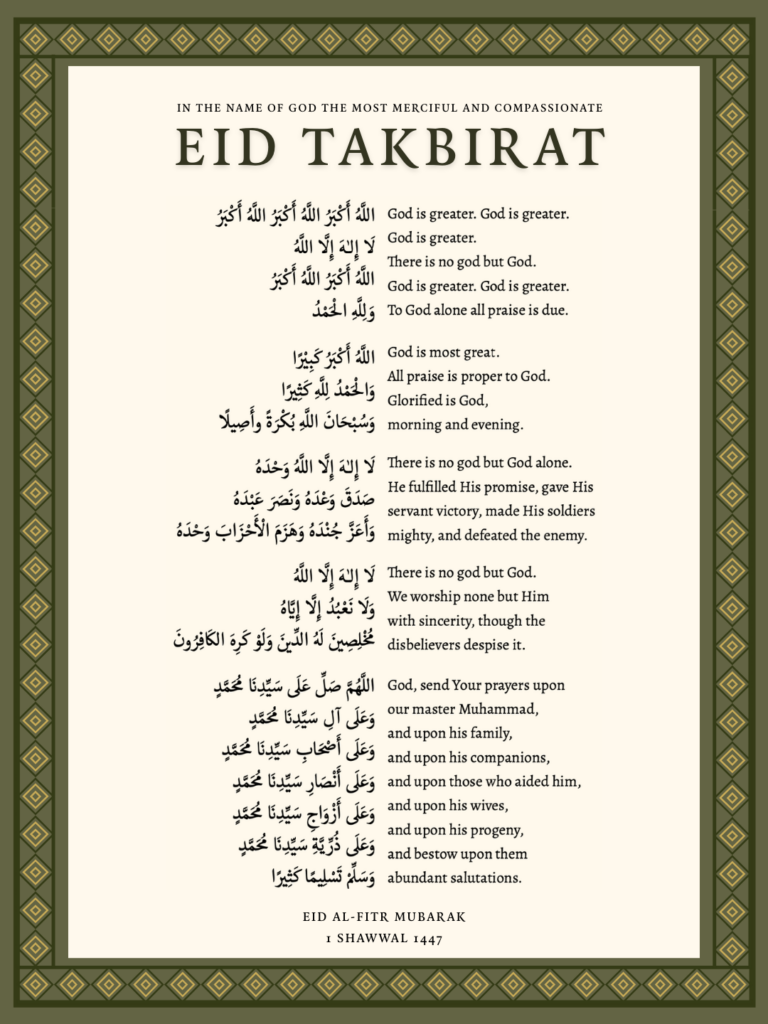 IN THE NAME OF GOD THE MOST MERCIFUL AND COMPASSIONATE
EID TAKBIRAT
اللَّهُ أَكْبَرُ اللَّهُ أَكْبَرُ اللَّهُ أَكْبَرُ
لَا إِلٰهَ إِلَّا اللَّهُ
اللَّهُ أَكْبَرُ اللَّهُ أَكْبَرُ
وَلِلَّهِ الْحَمْدُ
God is greater. God is greater.
God is greater.
There is no god but God.
God is greater. God is greater.
To God alone all praise is due.
اللَّهُ أَكْبَرُ كَبِيْرًا
وَالْحَمْدُ لِلَّهِ كَثِيْرًا
وَسُبْحَانَ اللَّهِ بُكْرَةً وأَصِيلًا
God is most great.
All praise is proper to God.
Glorified is God,
morning and evening.
لَا إِلٰهَ إِلَّا اللَّهُ وَحْدَهُ
صَدَقَ وَعْدَهُ وَنَصَرَ عَبْدَهُ
وَأَعَزَّ جُنْدَهُ وَهَزَمَ الْأَحْزَابَ وَحْدَهُ
There is no god but God alone.
He fulfilled His promise, gave His
servant victory, made His soldiers
mighty, and defeated the enemy.
لَا إِلٰهَ إِلَّا اللَّهُ
وَلَا نَعْبُدُ إِلَّا إِيَّاهُ
مُخْلِصِينَ لَهُ الدِّينَ وَلَوْ كَرِهَ الكَافِرُونَ
There is no god but God.
We worship none but Him
with sincerity, though the
disbelievers despise it.
اللَّهُمَّ صَلِّ عَلَى سَيِّدِنَا مُحَمَّدٍ
وَعَلَى آلِ سَيِّدِنَا مُحَمَّدٍ
وَعَلَى أَصْحَابِ سَيِّدِنَا مُحَمَّدٍ
وَعَلَى أَنْصَارِ سَيِّدِنَا مُحَمَّدٍ
وَعَلَى أَزْوَاجِ سَيِّدِنَا مُحَمَّدٍ
وَعَلَى ذُرِّيَّةِ سَيِّدِنَا مُحَمَّدٍ
وَسَلِّمْ تَسْلِيمًا كَثِيْرًا
God, send Your prayers upon
our master Muhammad,
and upon his family,
and upon his companions,
and upon those who aided him,
and upon his wives,
and upon his progeny,
and bestow upon them
abundant salutations.
EID AL-FITR MUBARAK
1 SHAWWAL 1447